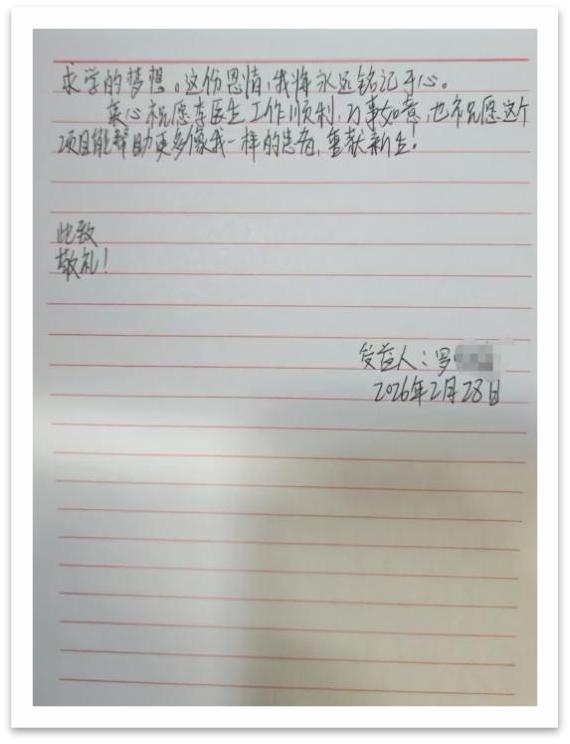 求学的梦想。这份恩情,我将永远铭记于心。
衷心祝愿李医生工作顺利,万事如意,也祝愿这个
项目能帮助更多像我一样的患者,重获新生。
此致
敬礼!
受益人:罗
2026年2月28日